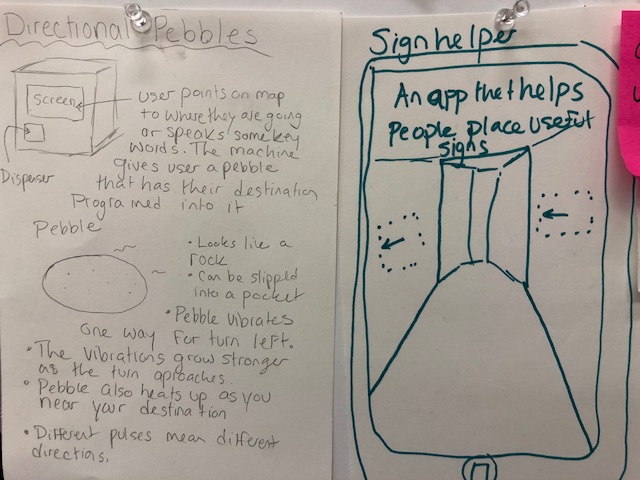 Directional Pebbles
Screen
Dispenser
user points on map
to where they are going
or speaks some key
words. The machine
gives user a pebble
that has their destination
Programed into it
Pebble
• Looks like a
rock
• Can be slipped
into a pocket
• Pebble vibrates
one way for turn left.
• The vibrations grow stronger
as the turn aproaches.
• Pebble also heats up as you
near your destination
• Different pulses mean different
directions.
Signhelper
An app that helps
People place useful
signs